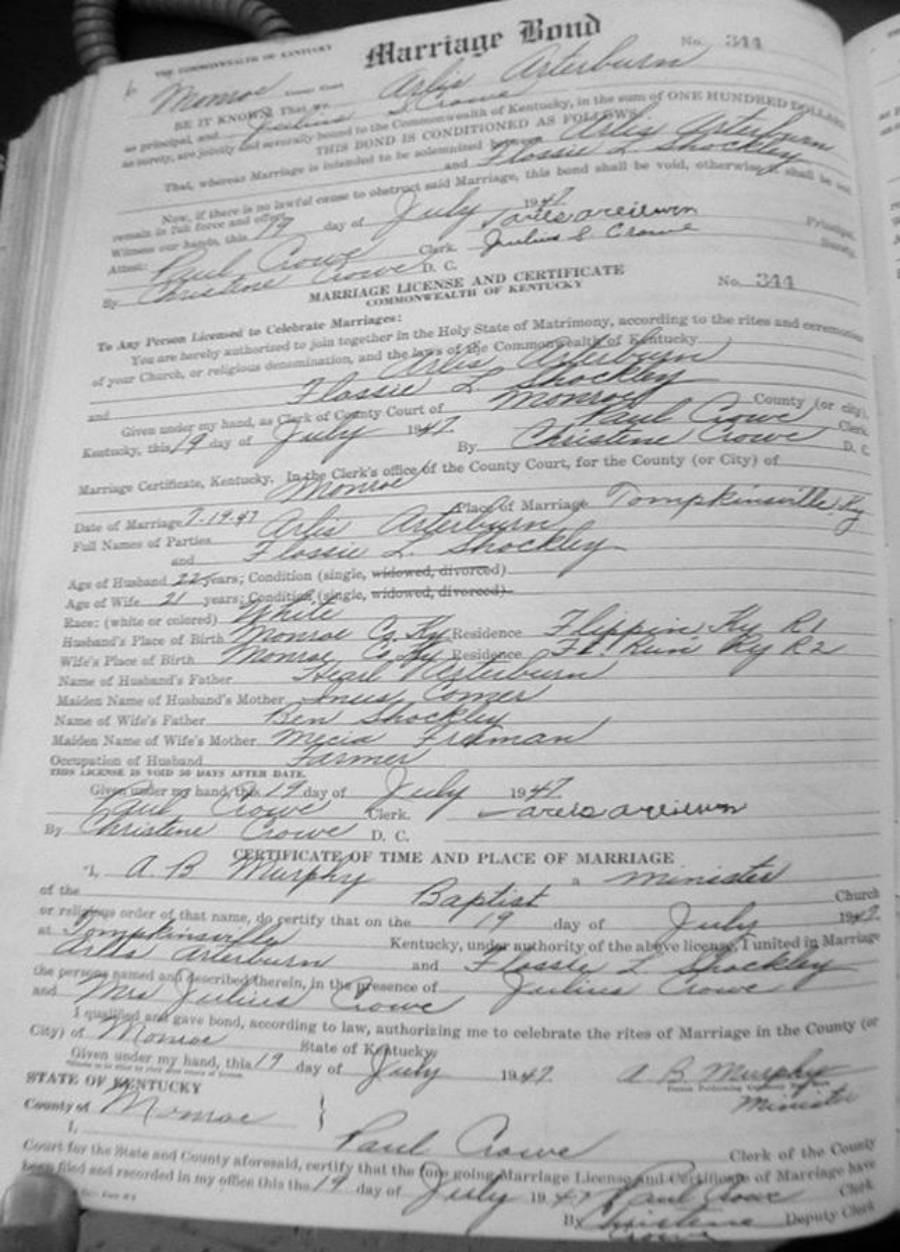 THE COMMONWEALTH OF KENTUCKY
Marriage Bond
No. 344
Monroe County Court
BE IT KNOWN, That we Arlis Arterburn
as principal, and Julius S Crowe
as surety, are jointly and severally bound to the Commonwealth of Kentucky, in the sum of ONE HUNDRED DOLLARS
THIS BOND IS CONDITIONED AS FOLLOWS:
That, whereas Marriage is intended to be solemnized between Arlis Arterburn
and Flossie L. Shockley
Now, if there is no lawful cause to obstruct said Marriage, this bond shall be void, otherwise, it shall be and
remain in full force and effect.
Witness our hands, this 19 day of July 1947.
Principal
Attest: Paul Crowe Clerk. Julius S. Crowe Surety
By Christine Crowe D. C.
MARRIAGE LICENSE AND CERTIFICATE
COMMONWEALTH OF KENTUCKY
No. 344
To Any Person Licensed to Celebrate Marriages:
You are hereby authorized to join together in the Holy State of Matrimony, according to the rites and ceremonies
of your Church, or religious denomination, and the laws of the Commonwealth of Kentucky
Arlis Arterburn
and Flossie L. Shockley
Given under my hand, as Clerk of County Court of Monroe County (or city),
Kentucky, this 19 day of July 1947. Paul Crowe Clerk
By Christine Crowe D. C.
Marriage Certificate, Kentucky. In the Clerk's office of the County Court, for the County (or City) of
Monroe
Date of Marriage 7-19-47 Place of Marriage Tompkinsville Ky
Full Names of Parties Arlis Arterburn
and Flossie L. Shockley
Age of Husband 22 years; Condition (single, widowed, divorced)
Age of Wife 21 years; Condition (single, widowed, divorced)
Race: (white or colored) White
Husband's Place of Birth Monroe Co. Ky Residence Flippin Ky R1
Wife's Place of Birth Monroe Co Ky Residence Ft. Run Ky R2
Name of Husband's Father Arterburn
Maiden Name of Husband's Mother Comer
Name of Wife's Father Ben Shockley
Maiden Name of Wife's Mother Mecia
Occupation of Husband Farmer
THIS LICENSE IS VOID 30 DAYS AFTER DATE.
Given under my hand, this 19 day of July 1947.
Paul Crowe Clerk.
By Christine Crowe D. C.
CERTIFICATE OF TIME AND PLACE OF MARRIAGE
I, A. B Murphy a minister
of the Baptist Church
or religious order of that name, do certify that on the 19 day of July 1947.
at Tompkinsville Kentucky, under authority of the above license, I united in Marriage
Arlis Arterburn and Flossie L Shockley
the persons named and described therein, in the presence of Julius Crowe
and Mrs Julius Crowe
I qualified and gave bond, according to law, authorizing me to celebrate the rites of Marriage in the County (or
City) of Monroe State of Kentucky.
Given under my hand, this 19 day of July 1947. A. B. Murphy
Minister
STATE OF KENTUCKY
County of Monroe
I, Paul Crowe Clerk of the County
Court for the State and County aforesaid, certify that the foregoing Marriage License and Certificate of Marriage have
been filed and recorded in my office this the 19 day of July 1947 Paul Crowe Clerk
By Christine Crowe Deputy Clerk